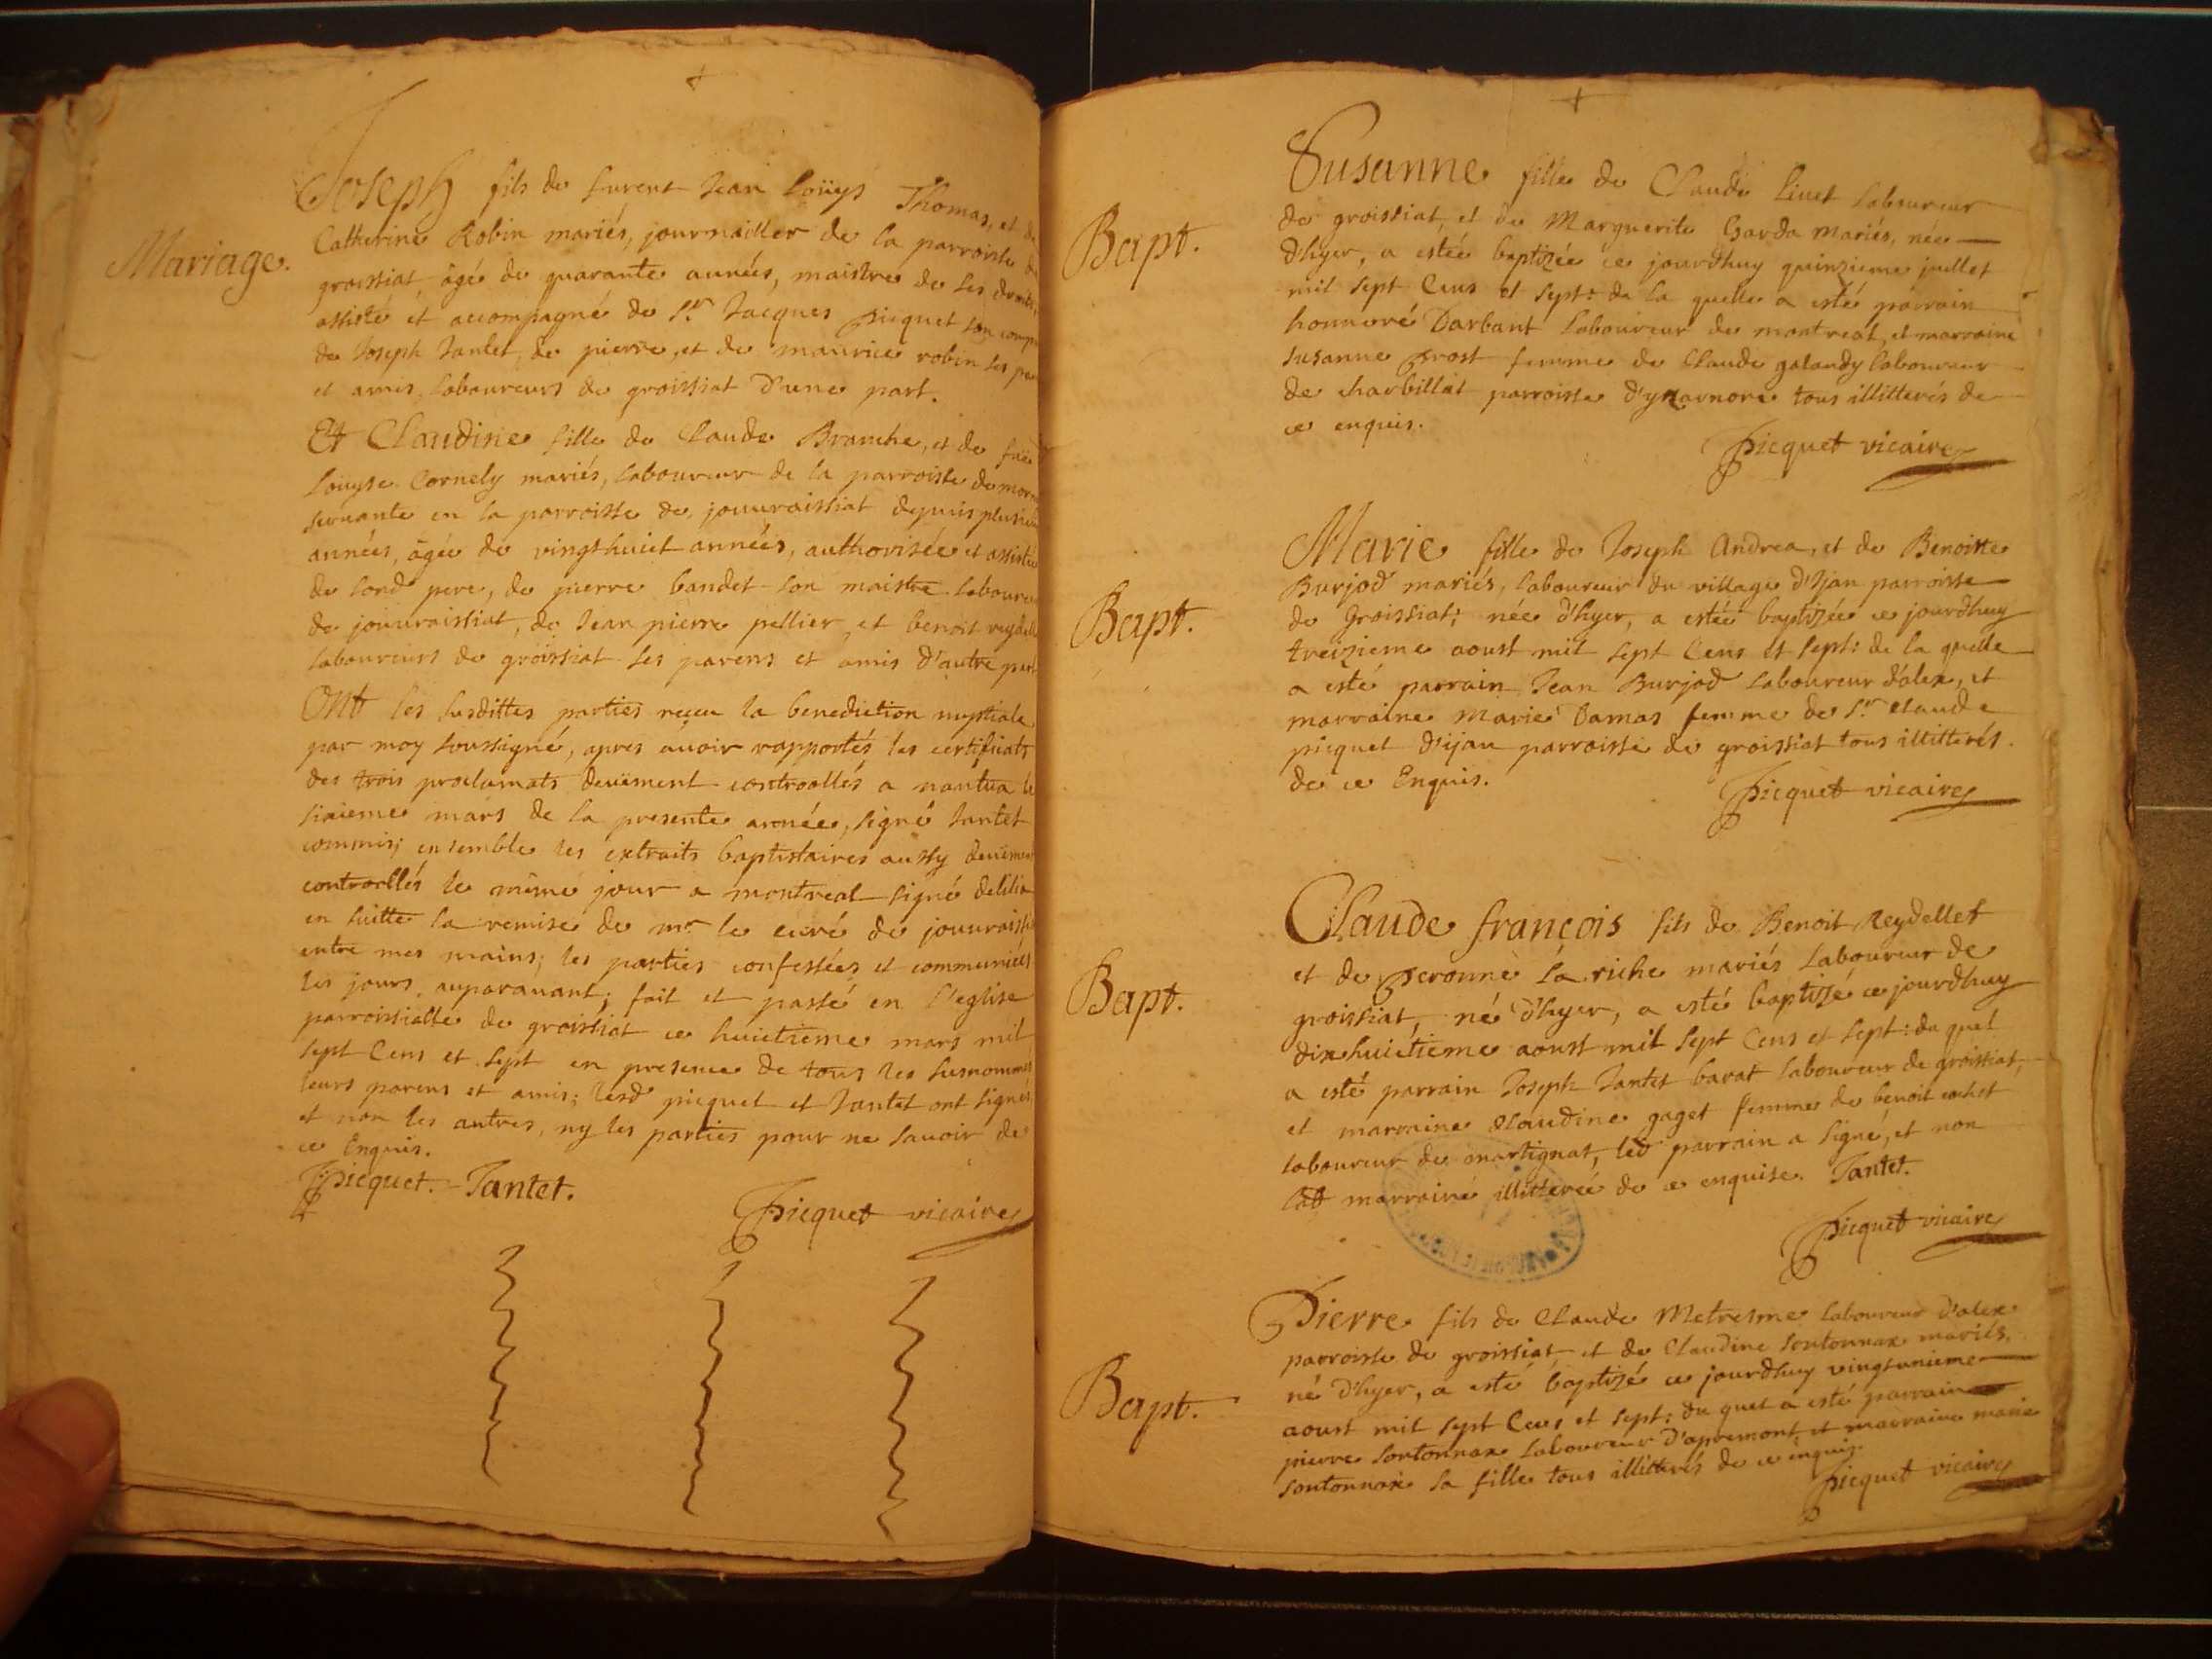 Mariage.
Joseph fils de furent Jean Loüys Thomas, et de
Catherine Robin mariés, journaillier de la parroisse de
groissiat, âgé de quarante années, maistre de ses droits,
assisté et accompagné de Sr. Jacques picquet son
de Joseph Tantet, de pierre, et de maurice robin ses
et amis, laboureurs de groissiat d'une part.
Et Claudine fille de Claude Branche, et de fuë
Loüyse Cornely mariés, laboureur de la parroisse de
seruante en la parroisse de jouuraissiat depuis
années, âgée de vingthuict années, authorisée et assistée
de sond pere, de pierre bandet son maistre
de jouuraissiat, de Jean pierre pellier, et benoit
laboureurs de groissiat ses parens et amis d'autre part
Ont les susdittes parties receu la benediction nuptiale
par moy soussigné, apres auoir rapportés les certificats
des trois proclamats deuëment controollés a nantua le
sixieme mars de la presente année, signé Tantet
commis; ensemble les extraits baptistaires aussy
controollés le même jour a montreal signé
en suitte la remise de mr. le curé de
entre mes mains; les parties confessées et communiées
les jours auparauant; fait et passé en l'eglise
parroissialle de groissiat ce huictieme mars mil
sept Cens et sept en presence de tous les susnommés
leurs parens et amis; lesd picquet et Tantet ont signés
et non les autres, ny les parties pour ne sauoir de
ce Enquis.
Picquet. Tantet.
Picquet vicaire
Bapt.
Susanne fille de Claude Liuet laboureur
de groissiat, et de Marguerite Garda mariés, née
d'hyer, a estée baptizée ce jourdhuy quinzieme juillet
mil sept Cens et sept: de la quelle a esté parrain
honnoré Darbant laboureur de montreal, et marraine
susanne Prost femme de Claude galandy laboureur
de charbillat parroisse d'yzarnore tous illitterés de
ce enquis.
Picquet vicaire
Bapt.
Marie fille de Joseph Andrea, et de Benoitte
Burjod mariés, laboureur du village d'Ijan parroisse
de Groissiat; née d'hyer, a estée baptizée ce jourdhuy
treizieme aoust mil sept Cens et sept: de la quelle
a esté parrain Jean Burjod laboureur d'alex, et
marraine Marie Damas femme de Sr. Claude
picquet d'ijan parroisse de groissiat tous illitterés
de ce Enquis.
Picquet vicaire
Bapt.
Claude françois fils de Benoit Reydellet
et de Peronne La riche mariés laboureur de
groissiat, né d'hyer, a esté baptizé ce jourdhuy
dixhuictieme aoust mil sept Cens et sept: du quel
a esté parrain Joseph Tantet barat laboureur de groissiat,
et marraine Claudine gaget femme de benoit cochet
laboureur de martignat, led parrain a signé, et non
lad marraine illitterée de ce enquise. Tantet.
Picquet vicaire
Bapt.
Pierre fils de Claude Metresme laboureur d'alex
parroisse de groissiat, et de Claudine sontonnax mariés,
né d'hyer, a esté baptizé ce jourdhuy vingtunieme
aoust mil sept Cens et sept: du quel a esté parrain
pierre sontonnax laboureur d'apremont, et marraine marie
sontonnax sa fille tous illitterés de ce enquis.
Picquet vicaire